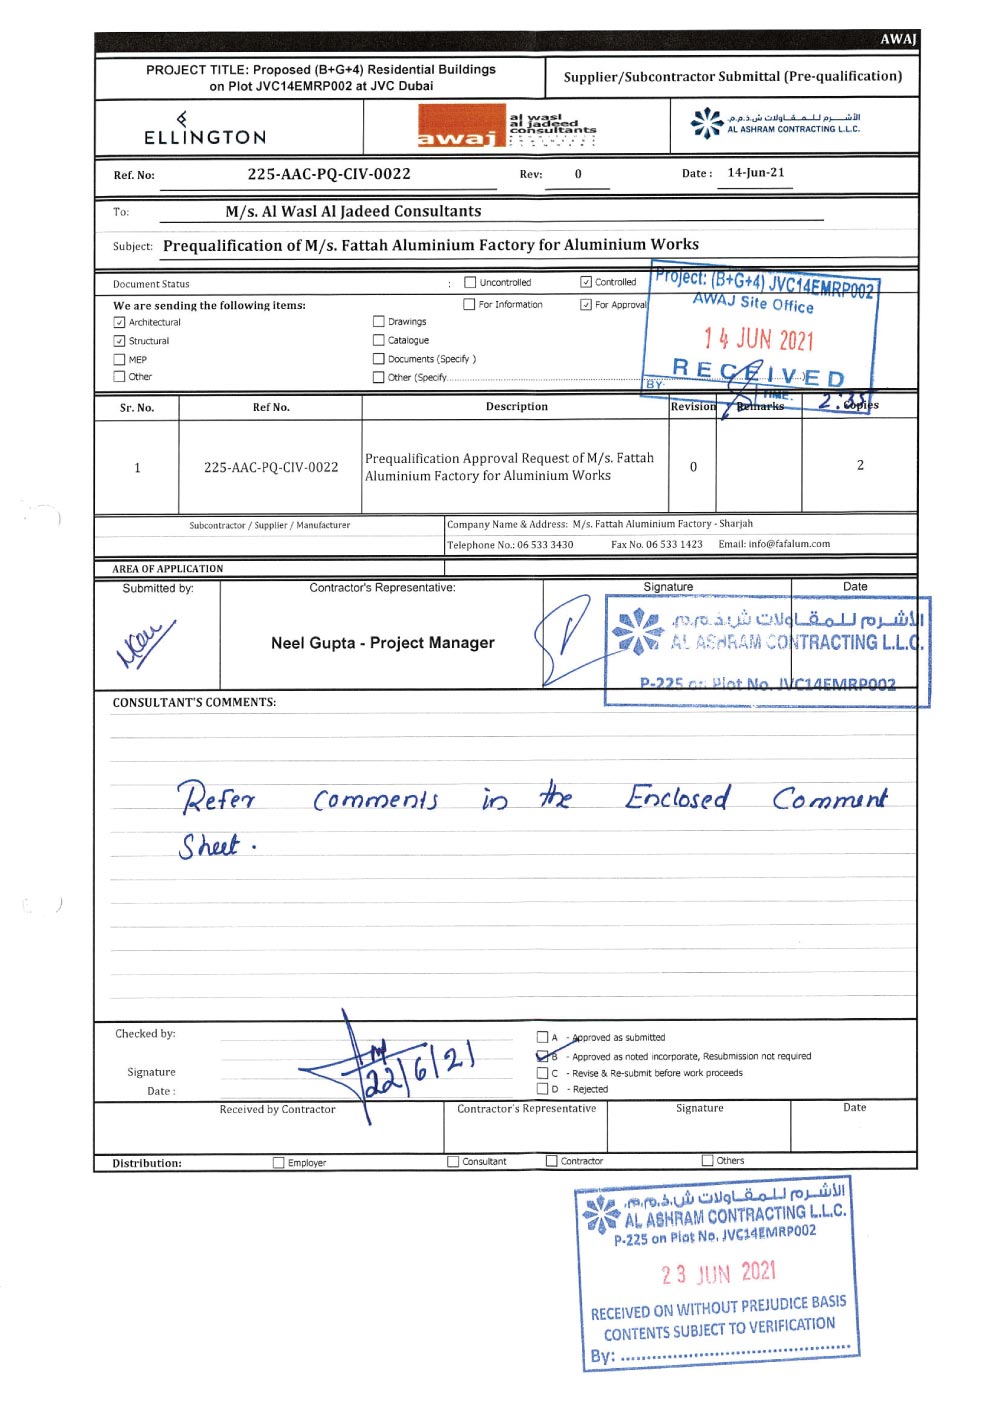 AWAJ
PROJECT TITLE: Proposed (B+G+4) Residential Buildings
on Plot JVC14EMRP002 at JVC Dubai
Supplier/Subcontractor Submittal (Pre-qualification)
ELLINGTON
awaj
al wasl
al jadeed
consultants
الأشـرم للـمـقـاولات ش.ذ.م.م.
AL ASHRAM CONTRACTING L.L.C.
Ref. No: 225-AAC-PQ-CIV-0022 Rev: 0 Date : 14-Jun-21
To: M/s. Al Wasl Al Jadeed Consultants
Subject: Prequalification of M/s. Fattah Aluminium Factory for Aluminium Works
Document Status : Uncontrolled Controlled
We are sending the following items: For Information For Approval
Architectural Drawings
Structural Catalogue
MEP Documents (Specify )
Other Other (Specify
Project: (B+G+4) JVC14EMRP002
AWAJ Site Office
14 JUN 2021
RECEIVED
BY: TIME: 2:35
Sr. No. Ref No. Description Revision Remarks Copies
1 225-AAC-PQ-CIV-0022 Prequalification Approval Request of M/s. Fattah
Aluminium Factory for Aluminium Works 0 2
Subcontractor / Supplier / Manufacturer Company Name & Address: M/s. Fattah Aluminium Factory - Sharjah
Telephone No.: 06 533 3430 Fax No. 06 533 1423 Email: info@fafalum.com
AREA OF APPLICATION
Submitted by: Contractor's Representative: Signature Date
Neel Gupta - Project Manager
الأشـرم للـمـقـاولات ش.ذ.م.م.
AL ASHRAM CONTRACTING L.L.C.
P-225 on Plot No. JVC14EMRP002
CONSULTANT'S COMMENTS:
Refer Comments in the Enclosed Comment
Sheet.
Checked by:
A - Approved as submitted
B - Approved as noted incorporate, Resubmission not required
Signature C - Revise & Re-submit before work proceeds
Date : 22/6/21 D - Rejected
Received by Contractor Contractor's Representative Signature Date
Distribution: Employer Consultant Contractor Others
الأشـرم للـمـقـاولات ش.ذ.م.م.
AL ASHRAM CONTRACTING L.L.C.
P-225 on Plot No. JVC14EMRP002
23 JUN 2021
RECEIVED ON WITHOUT PREJUDICE BASIS
CONTENTS SUBJECT TO VERIFICATION
By: